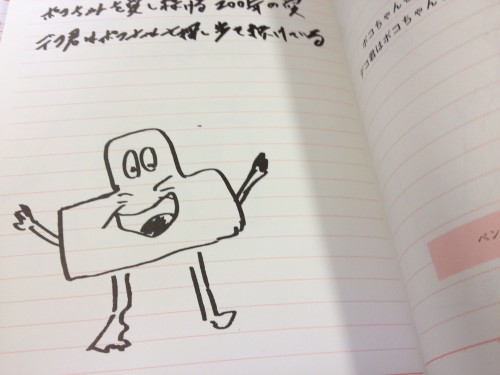 ボコちゃんを愛し続ける200年の愛
デコ君はボコちゃんを探し歩き続けている
ボコちゃん
デコ君はボコちゃん
ペン